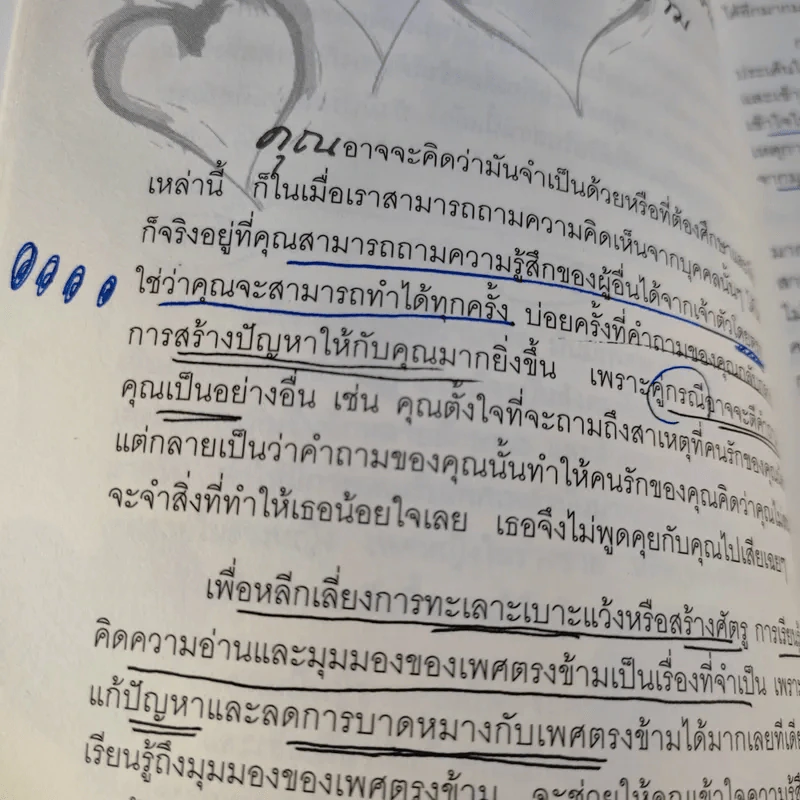 คุณอาจจะคิดว่ามันจำเป็นด้วยหรือที่ต้องศึกษา
เหล่านี้ ก็ในเมื่อเราสามารถถามความคิดเห็นจากบุคคลนั้นๆ ได้
ก็จริงอยู่ที่คุณสามารถถามความรู้สึกของผู้อื่นได้จากเจ้าตัวโดย
ใช่ว่าคุณจะสามารถทำได้ทุกครั้ง บ่อยครั้งที่คำถามของคุณ
การสร้างปัญหาให้กับคุณมากยิ่งขึ้น เพราะคู่กรณีอาจจะตี
คุณเป็นอย่างอื่น เช่น คุณตั้งใจที่จะถามถึงสาเหตุที่คนรักของคุณ
แต่กลายเป็นว่าคำถามของคุณนั้นทำให้คนรักของคุณคิดว่าคุณ
จะจำสิ่งที่ทำให้เธอน้อยใจเลย เธอจึงไม่พูดคุยกับคุณไปเสียเฉยๆ
เพื่อหลีกเลี่ยงการทะเลาะเบาะแว้งหรือสร้างศัตรู การเรียน
คิดความอ่านและมุมมองของเพศตรงข้ามเป็นเรื่องที่จำเป็น เพราะ
แก้ปัญหาและลดการบาดหมางกับเพศตรงข้ามได้มากเลยทีเดีย
เรียนรู้ถึงมุมมองของเพศตรงข้าม จะช่วยให้คุณเข้าใจความรู้